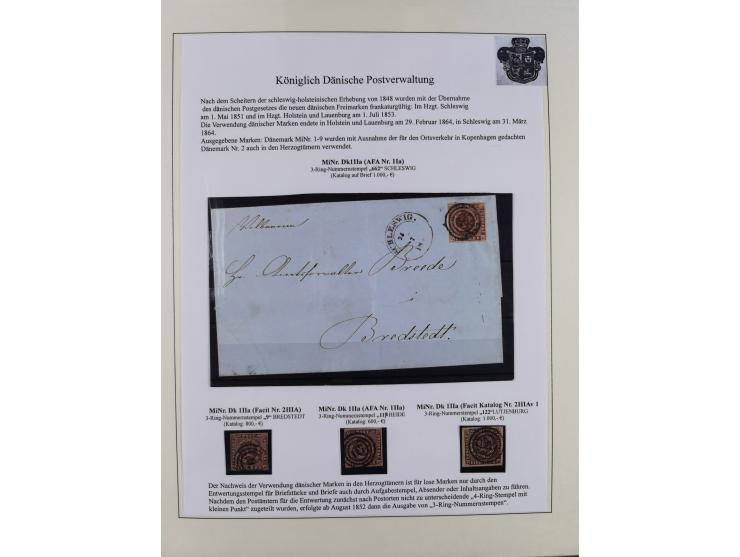 Königlich Dänische Postverwaltung
Nach dem Scheitern der schleswig-holsteinischen Erhebung von 1848 wurden mit der Übernahme
des dänischen Postgesetzes die neuen dänischen Freimarken frankaturgültig: Im Hzgt. Schleswig
am 1. Mai 1851 und im Hzgt. Holstein und Lauenburg am 1. Juli 1853.
Die Verwendung dänischer Marken endete in Holstein und Lauenburg am 29. Februar 1864, in Schleswig am 31. März
1864.
Ausgegebene Marken: Dänemark MiNr. 1-9 wurden mit Ausnahme der für den Ortsverkehr in Kopenhagen gedachten
Dänemark Nr. 2 auch in den Herzogtümern verwendet.
MiNr. Dk1IIa (AFA Nr. 1Ia)
3-Ring-Nummernstempel „662“ SCHLESWIG
(Katalog auf Brief 1.000,- €)
SCHLESWIG.
24 7
Breede
Bredstedt.
MiNr. Dk 1IIa (Facit Nr. 2IIIA)
3-Ring-Nummernstempel „9“ BREDSTEDT
(Katalog: 800,- €)
MiNr. Dk 1IIa (AFA Nr. 1Ia)
3-Ring-Nummernstempel HEIDE
(Katalog: 600,- €)
MiNr. Dk 1IIa (Facit Katalog Nr. 2IIIAv 1
3-Ring-Nummernstempel „122“LÜTJENBURG
(Katalog: 1.000,- €)
Der Nachweis der Verwendung dänischer Marken in den Herzogtümern ist für lose Marken nur durch den
Entwertungsstempel für Briefstücke und Briefe auch durch Aufgabestempel, Absender oder Inhaltangaben zu führen.
Nachdem den Postämtern für die Entwertung zunächst nach Postorten nicht zu unterscheidende „4-Ring-Stempel mit
kleinen Punkt“ zugeteilt wurden, erfolgte ab August 1852 dann die Ausgabe von „3-Ring-Nummernstempen“.